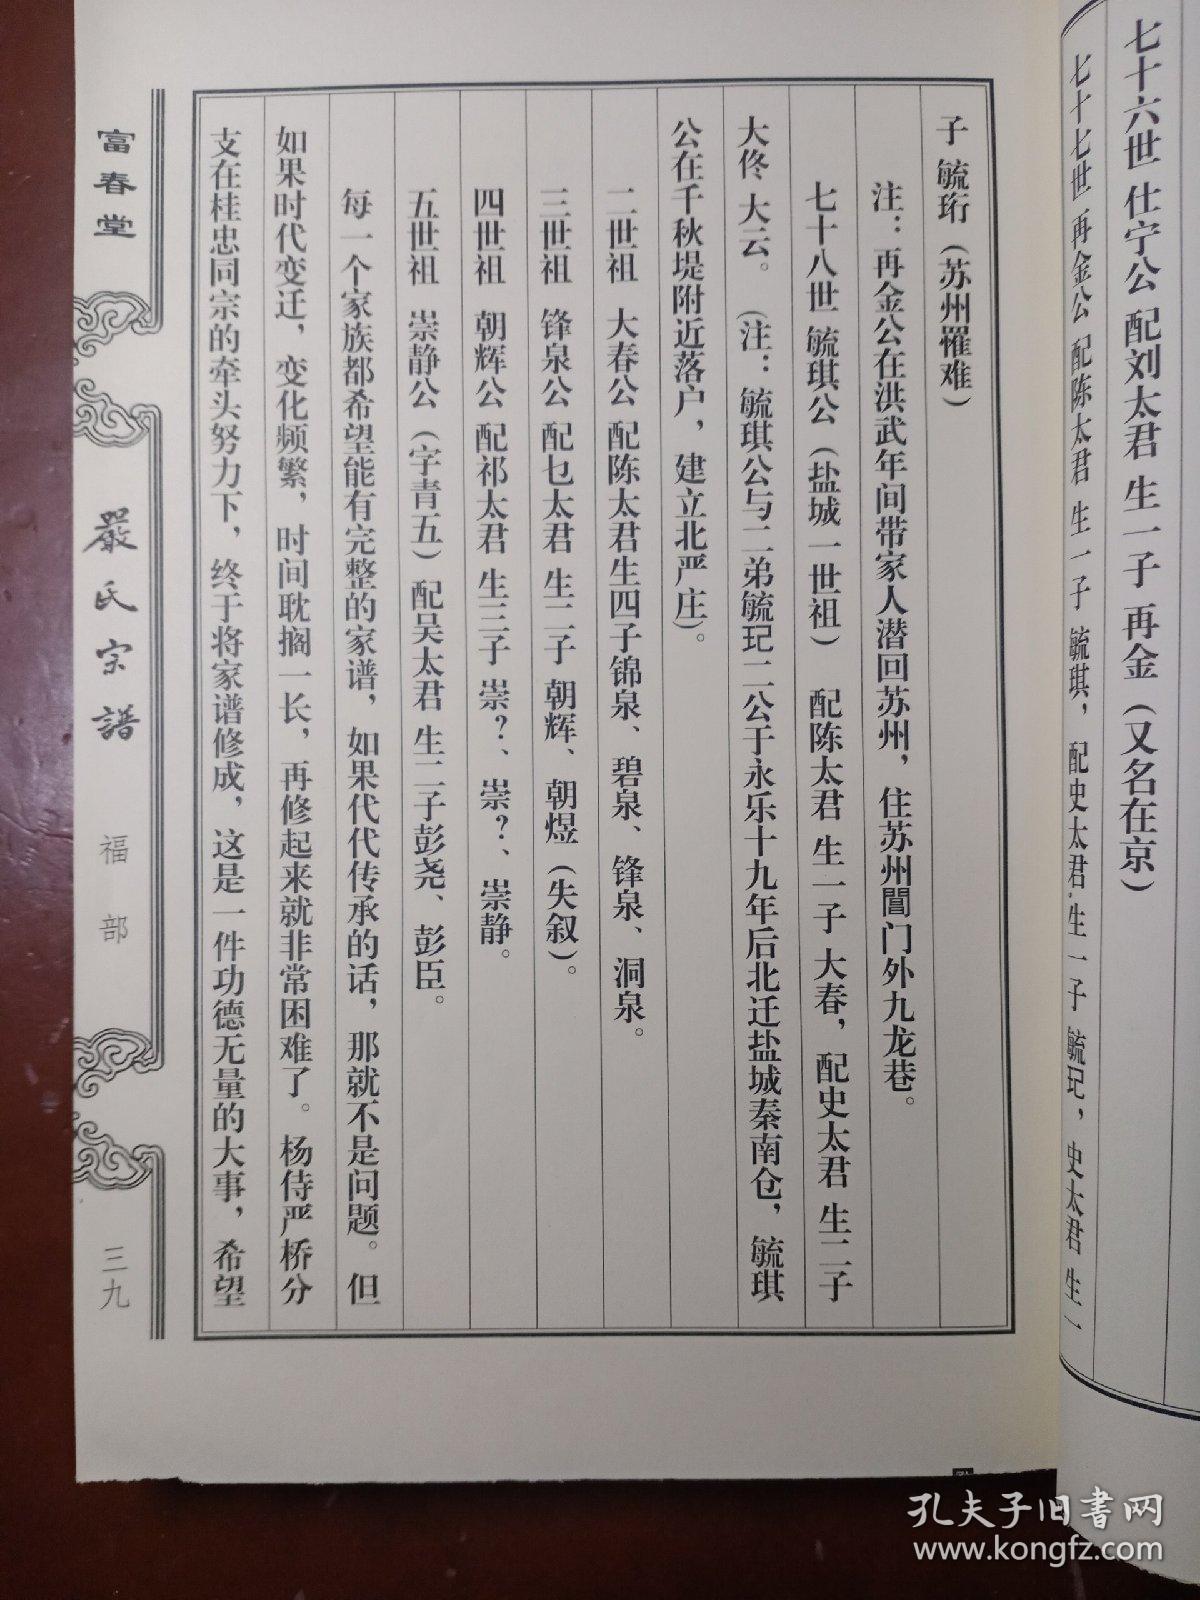 七十六世 仕宁公 配刘太君 生一子 再金（又名在京）
七十七世 再金公 配陈太君 生一子 毓琪，配史太君生一子 毓玘，史太君 生一
子 毓珩（苏州罹难）
注：再金公在洪武年间带家人潜回苏州，住苏州閶门外九龙巷。
七十八世 毓琪公（盐城一世祖） 配陈太君 生一子 大春，配史太君 生二子
大佟 大云。（注：毓琪公与二弟毓玘二公于永乐十九年后北迁盐城秦南仓，毓琪
公在千秋堤附近落户，建立北严庄）。
二世祖 大春公 配陈太君生四子锦泉、碧泉、锋泉、洞泉。
三世祖 锋泉公 配乜太君 生二子 朝辉、朝煜（失叙）。
四世祖 朝辉公 配祁太君 生三子 崇？、崇？、崇静。
五世祖 崇静公（字青五）配吴太君 生二子彭尧、彭臣。
每一个家族都希望能有完整的家谱，如果代代传承的话，那就不是问题。但
如果时代变迁，变化频繁，时间耽搁一长，再修起来就非常困难了。杨侍严桥分
支在桂忠同宗的牵头努力下，终于将家谱修成，这是一件功德无量的大事，希望
富春堂
嚴氏宗譜
福部
三九
孔夫子旧书网
www.kongfz.com